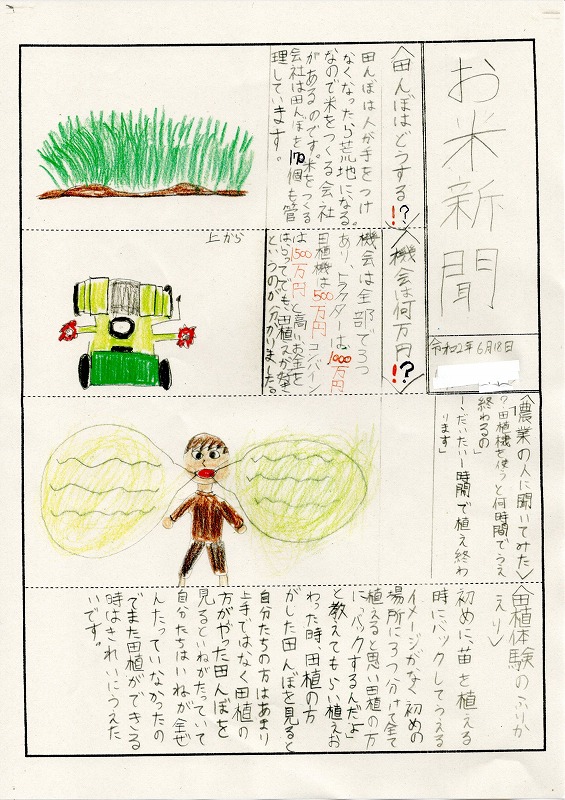 お米新聞
令和2年6月18日
〈田んぼはどうする!?〉
田んぼは人が手をつけ
なくなったら荒地になる。
なので米をつくる会社
があるのです。米をつくる
会社は田んぼを170個も管
理しています。
〈機会は何万円!?〉
機会は全部で3つ
あり、トラクターは、1000万円
田植機は500万円 コンバイン
は1500万円と高いお金を
はらってでも、田植えがなぜ
というのが分かりました。
上から
〈農業の人に聞いてみた〉
田植機を使うと何時間でうえ
終わるの
「だいたい一時間で植え終わ
ります」
〈田植体験のふりか
えり〉
初めに、苗を植える
時にバックしてうえる
イメージがなく初めの
場所に3つ分けて全て
植えると思い田植の方
に「バックするんだよ」
と教えてもらい植えお
わった時、田植の方
がした田んぼを見ると
自分たちの方はあまり
上手ではなく田植の
方がやった田んぼを
見るといねがたっていて
自分たちはいねが全ぜ
んたっていなかったの
でまた田植ができる
時はきれいにうえた
いです。